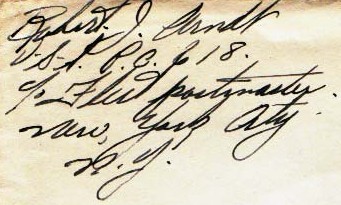 Robert J. Arndt
U.S.S. P.C. 618.
c/o Fleet Postmaster.
New, York City.
N.Y.